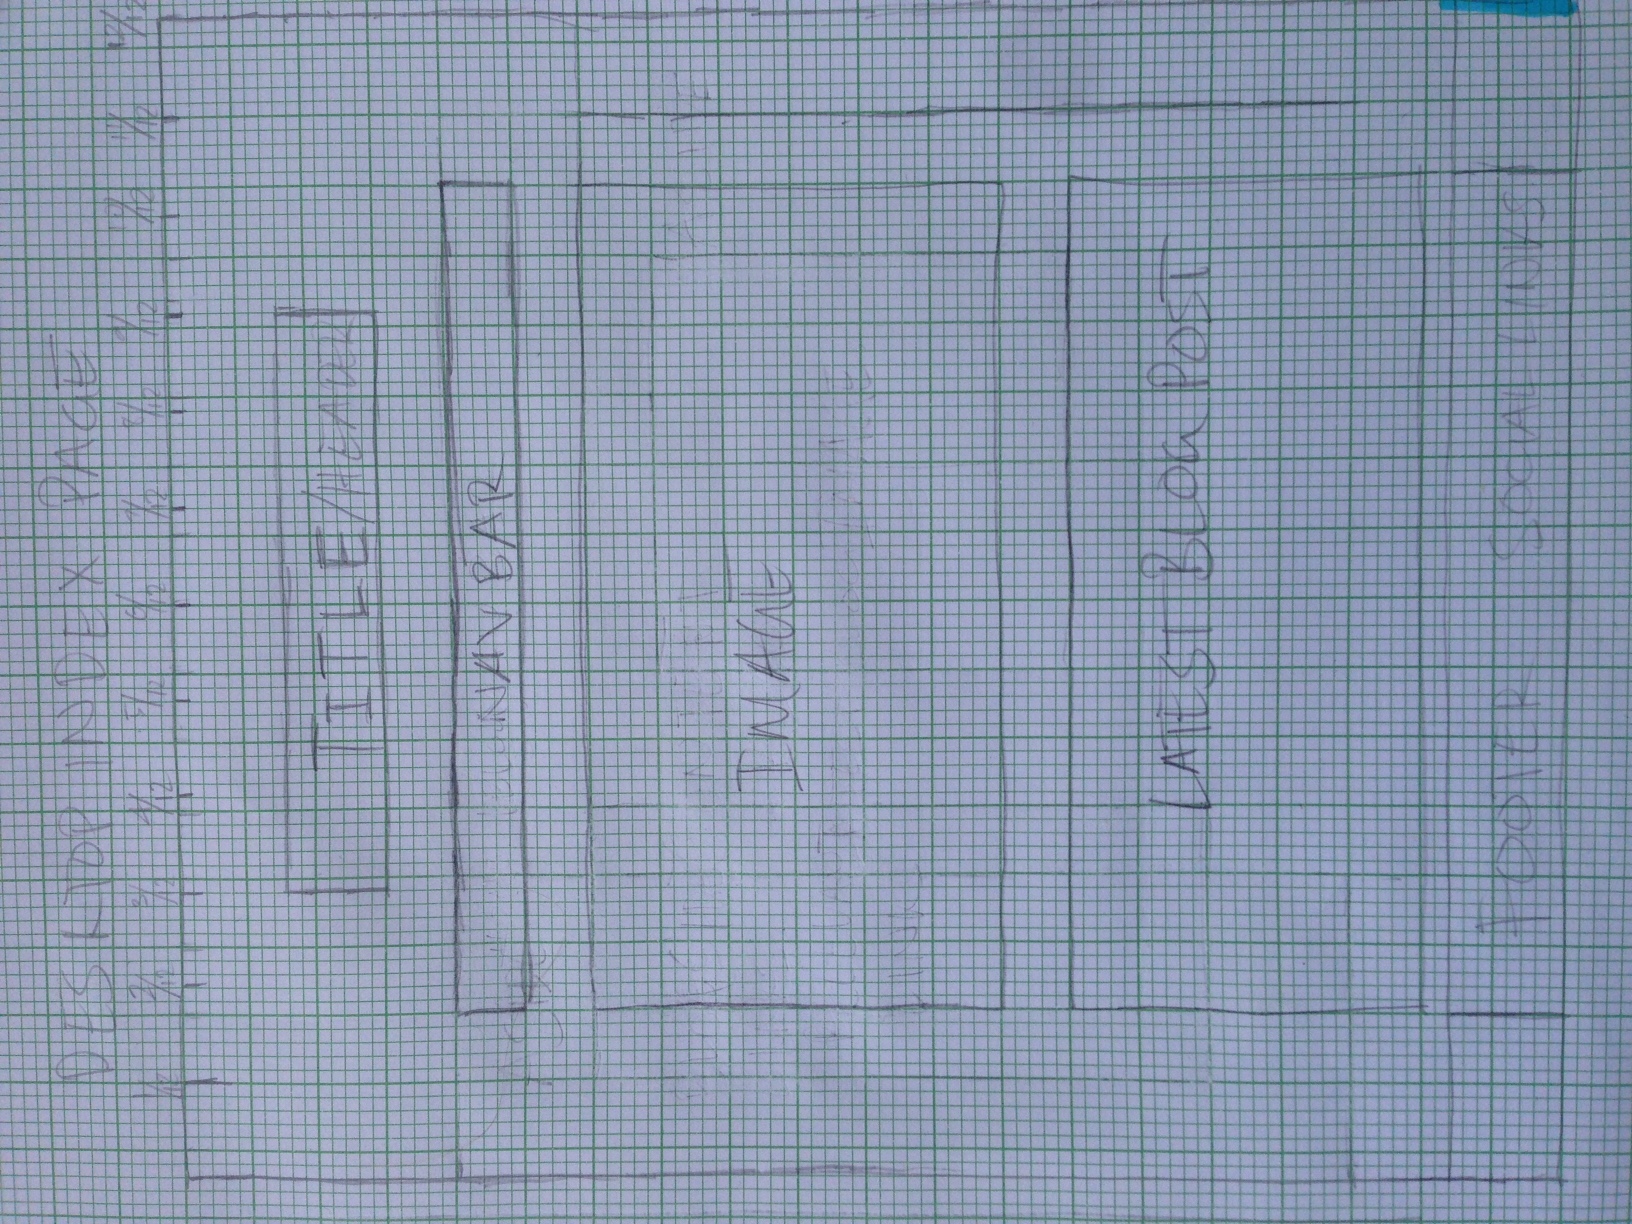 DESKTOP INDEX PAGE
1/12 2/12 3/12 4/12 5/12 6/12 7/12 8/12 9/12 10/12 11/12 12/12
TITLE/HEADER
NAV BAR
IMAGE
LATEST BLOG POST
FOOTER SOCIAL LINKS